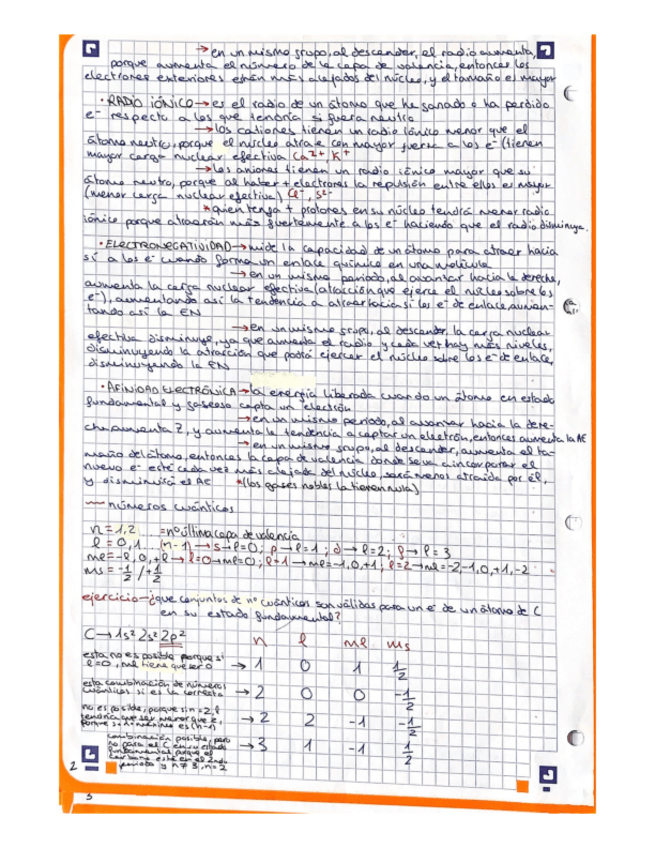 → en un mismo grupo, al descender, el radio aumenta,
porque aumenta el número de la capa de valencia, entonces los
electrones exteriores están más alejados del núcleo, y el tamaño es mayor
· RADIO IÓNICO → es el radio de un átomo que ha ganado o ha perdido
e⁻ respecto a los que tendría si fuera neutro
→ los cationes tienen un radio iónico menor que el
átomo neutro, porque el núcleo atrae con mayor fuerza a los e⁻ (tienen
mayor carga nuclear efectiva) Ca²⁺, K⁺
→ los aniones tienen un radio iónico mayor que su
átomo neutro, porque al haber + electrones la repulsión entre ellos es mayor
(menor carga nuclear efectiva) Cl⁻, S²⁻
* quien tenga + protones en su núcleo tendrá menor radio
iónico porque atraerán más fuertemente a los e⁻ haciendo que el radio disminuya.
· ELECTRONEGATIVIDAD → mide la capacidad de un átomo para atraer hacia
sí a los e⁻ cuando forma un enlace químico en una molécula
→ en un mismo periodo, al avanzar hacia la derecha,
aumenta la carga nuclear efectiva (atracción que ejerce el núcleo sobre los
e⁻), aumentando así la tendencia a atraer hacia sí los e⁻ de enlace, aumen-
tando así la EN
→ en un mismo grupo, al descender, la carga nuclear
efectiva disminuye, ya que aumenta el radio y cada vez hay más niveles,
disminuyendo la atracción que podrá ejercer el núcleo sobre los e⁻ de enlace,
disminuyendo la EN
· AFINIDAD ELECTRÓNICA → la energía liberada cuando un átomo en estado
fundamental y gaseoso capta un electrón
→ en un mismo periodo, al avanzar hacia la dere-
cha aumenta Z, y aumenta la tendencia a captar un electrón, entonces aumenta la AE
→ en un mismo grupo, al descender, aumenta el ta-
maño del átomo, entonces la capa de valencia donde se va a incorporar el
nuevo e⁻ esté cada vez más alejada del núcleo, será menos atraída por él,
y disminuirá el AE *(los gases nobles la tienen nula)
números cuánticos
n = 1, 2 ... = nº última capa de valencia
l = 0, 1 ... (n-1) → s → l=0; p → l=1; d → l=2; f → l=3
ml = -l, 0, +l → l=0 → ml=0; l=1 → ml=-1, 0, +1; l=2 → ml=-2 -1, 0, +1, -2
ms = -1/2 / +1/2
ejercicio → ¿que conjuntos de nº cuánticos son válidas para un e⁻ de un átomo de C
en su estado fundamental?
C → 1s² 2s² 2p² n l ml ms
esta no es posible porque si
l=0, ml tiene que ser 0 → 1 0 1 1/2
esta combinación de números
cuánticos si es la correcta → 2 0 0 -1/2
no es posible, porque si n=2, l
tendría que ser menor que 2,
porque su máximo es (n-1) → 2 2 -1 -1/2
combinación posible, pero
no para el C en su estado
fundamental porque el
carbono está en el 2ndo
periodo y n≠3, n=2 → 3 1 -1 1/2
2
3